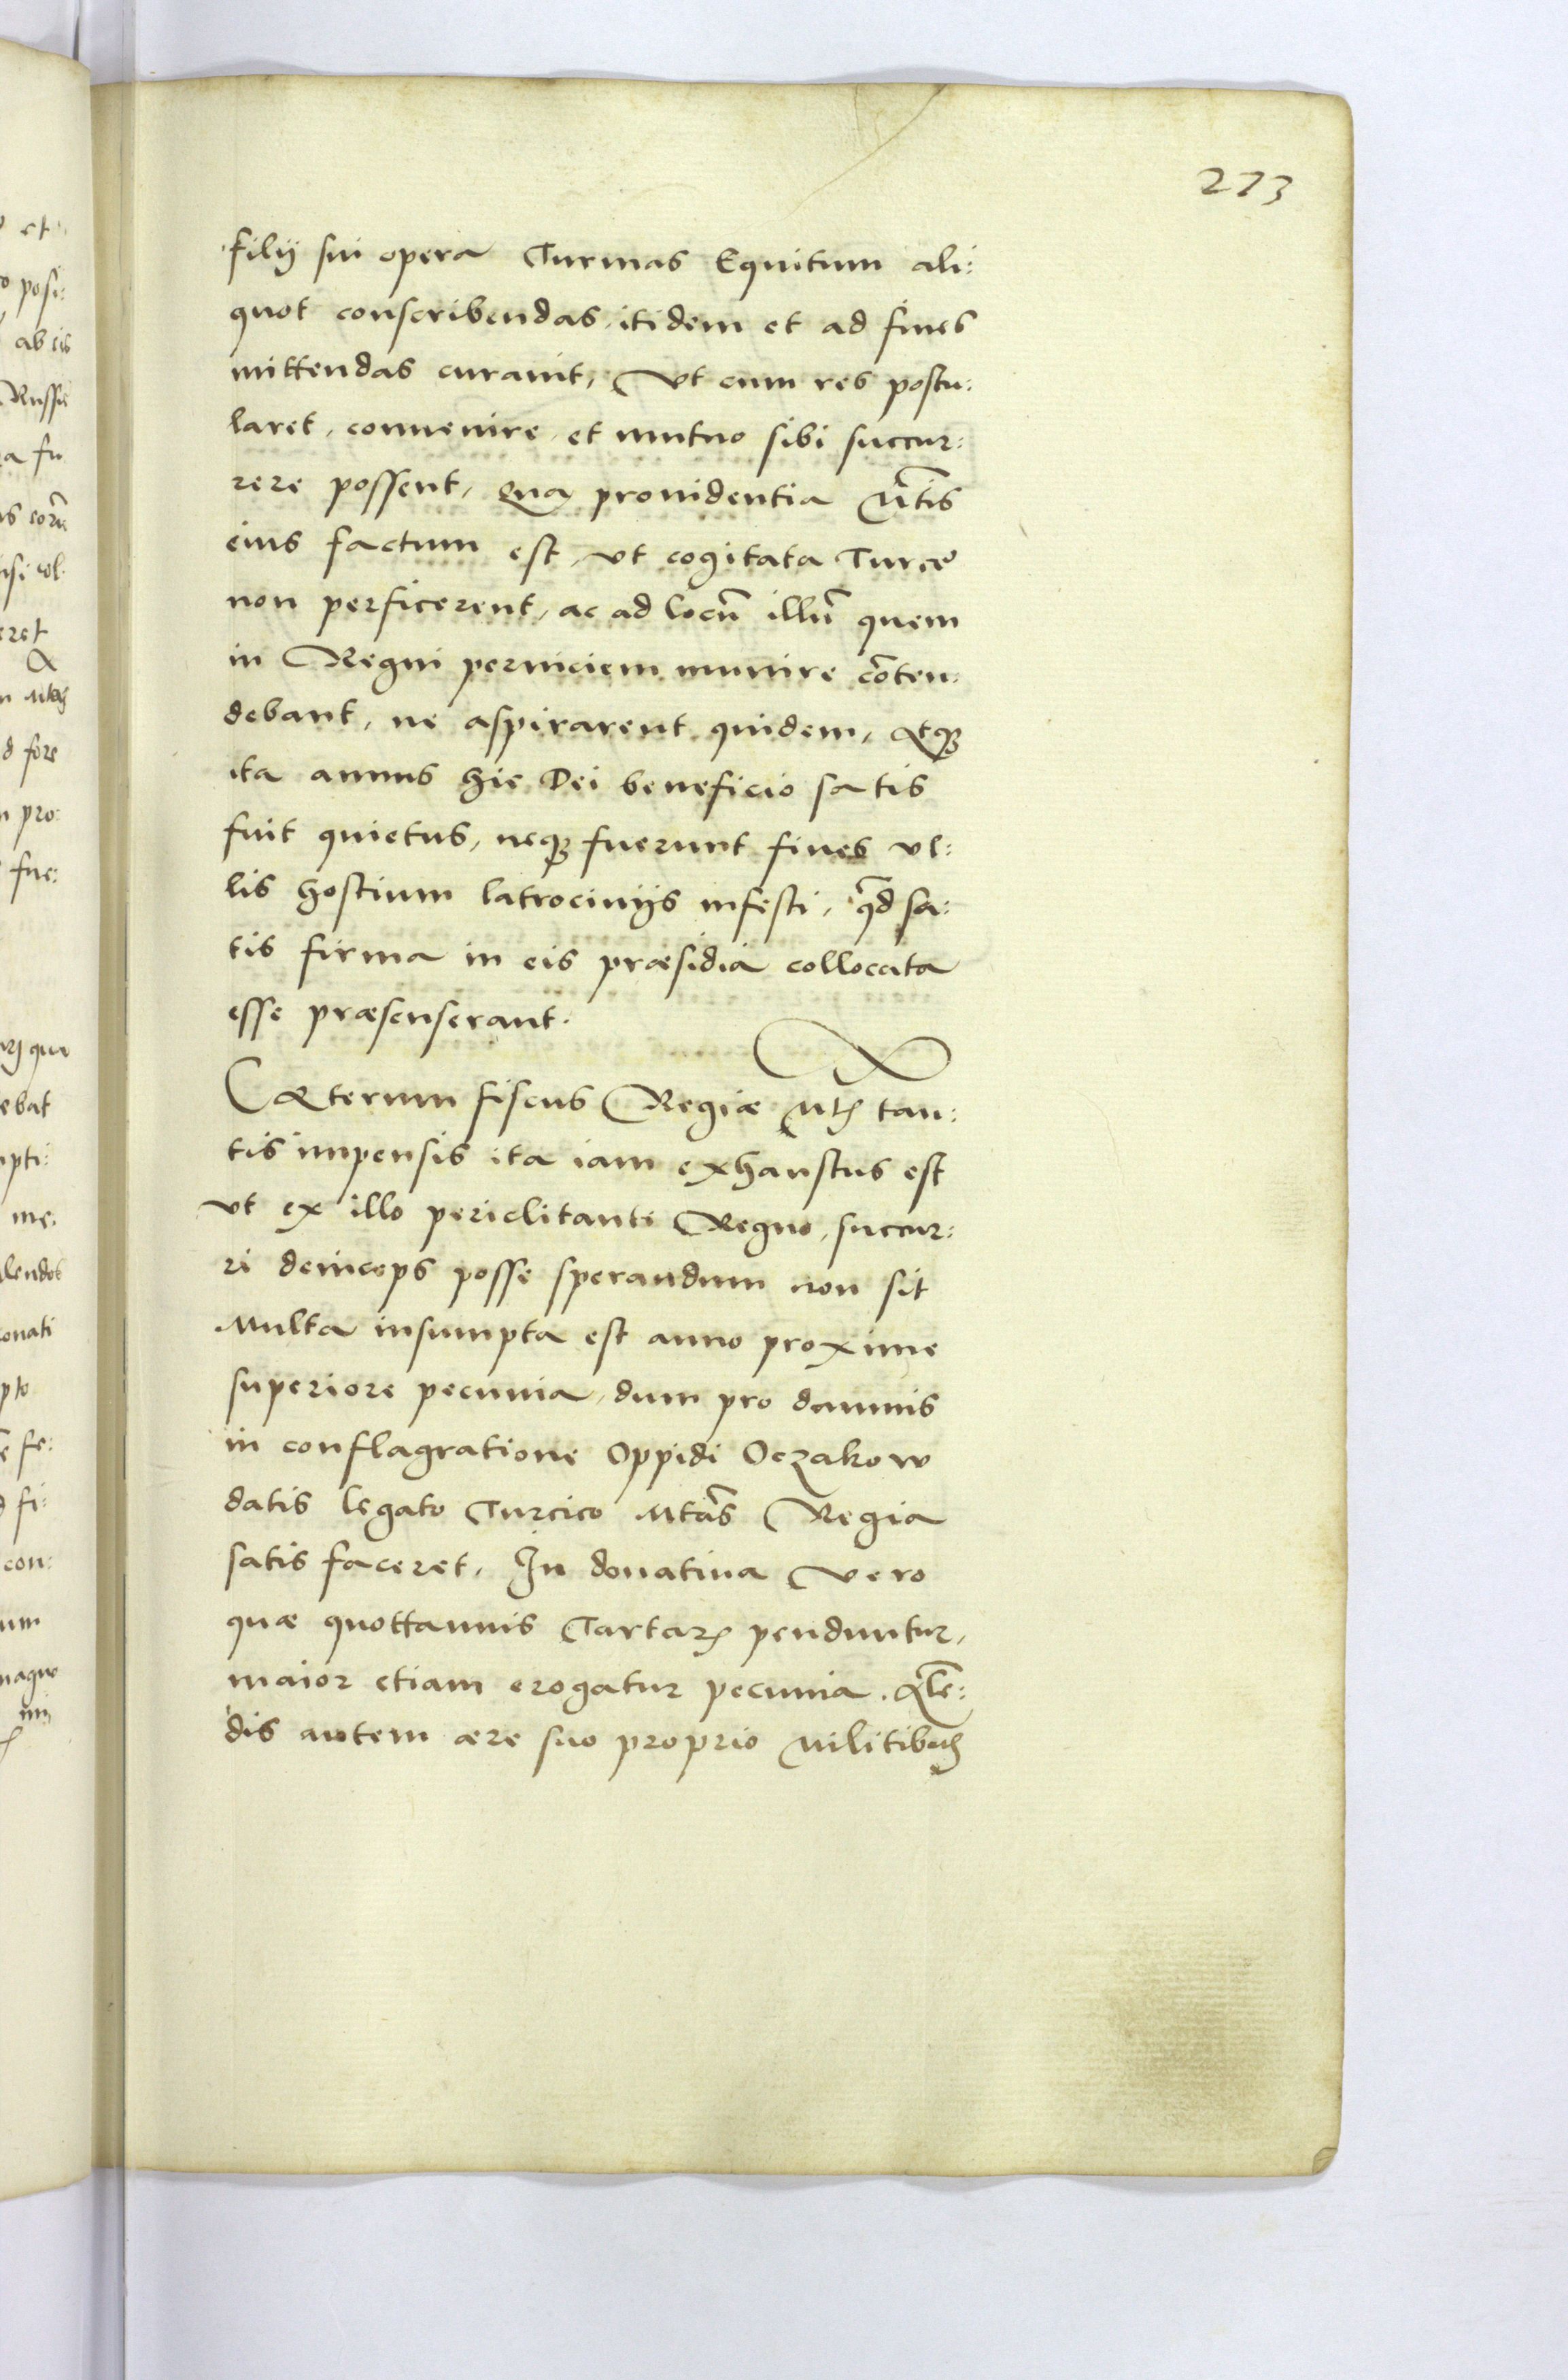 273
filij sui opera Turmas Equitum ali:
quot conscribendas, itidem et ad fines
mittendas curauit, Vt cum res postu:
laret, conuenire, et mutuo sibi succur:
rere possent, Qua prouidentia Mtis
eius factum est, vt cogitata Turcę
non perficerent, ac ad locū illū quem
in Regni perniciem munire cōten:
debant, ne aspirarent quidem, Atq;
ita annus hic Dei beneficio satis
fuit quietus, neq; fuerunt fines vl:
lis hostium latrocinijs infesti, qd sa:
tis firma in eis præsidia collocata
esse præsenserant.
Cæterum fiscus Regiæ Mtis tan:
tis impensis ita iam exhaustus est
vt ex illo periclitanti Regno, succur:
ri deinceps posse sperandum non sit
Multa insumpta est anno proxime
superiore pecunia, dum pro damnis
in conflagratione Oppidi Oczakow
datis legato Turcico Mtas Regia
satis faceret, In donatiua vero
quæ quottannis Tartaris penduntur,
maior etiam erogatur pecunia. Alē:
dis autem ære suo proprio Militibus